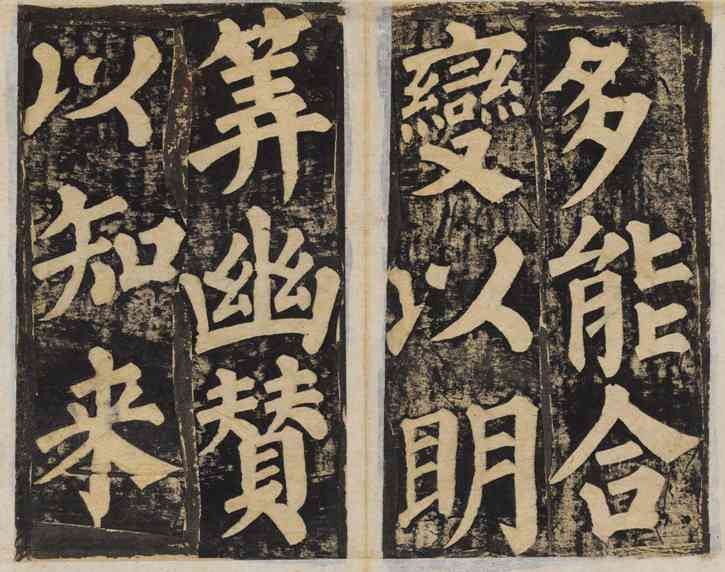 多能合
變以眀
筭幽賛
以知来